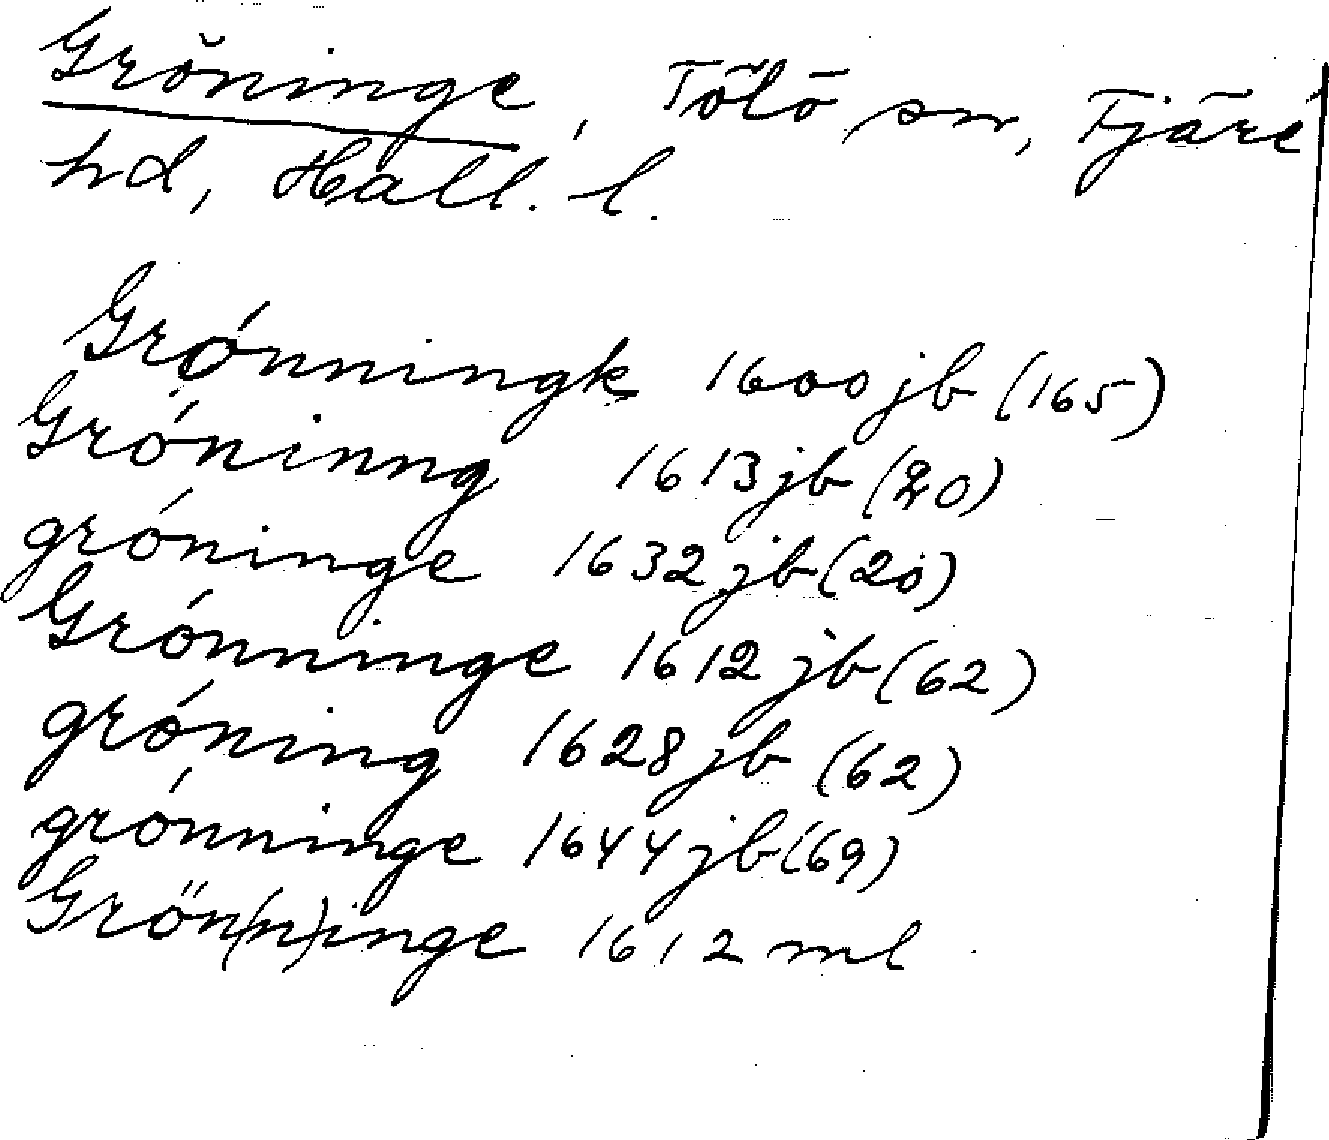 Gröninge, Tölö sn, Fjäre
hd, Hall. l.
Grónningk 1600 jb (165)
Gróninng 1613 jb (20)
gróninge 1632 jb (20)
Grónninge 1612 jb (62)
gróning 1628 jb (62)
grónninge 1644 jb (69)
Grön(n)inge 1612 ml